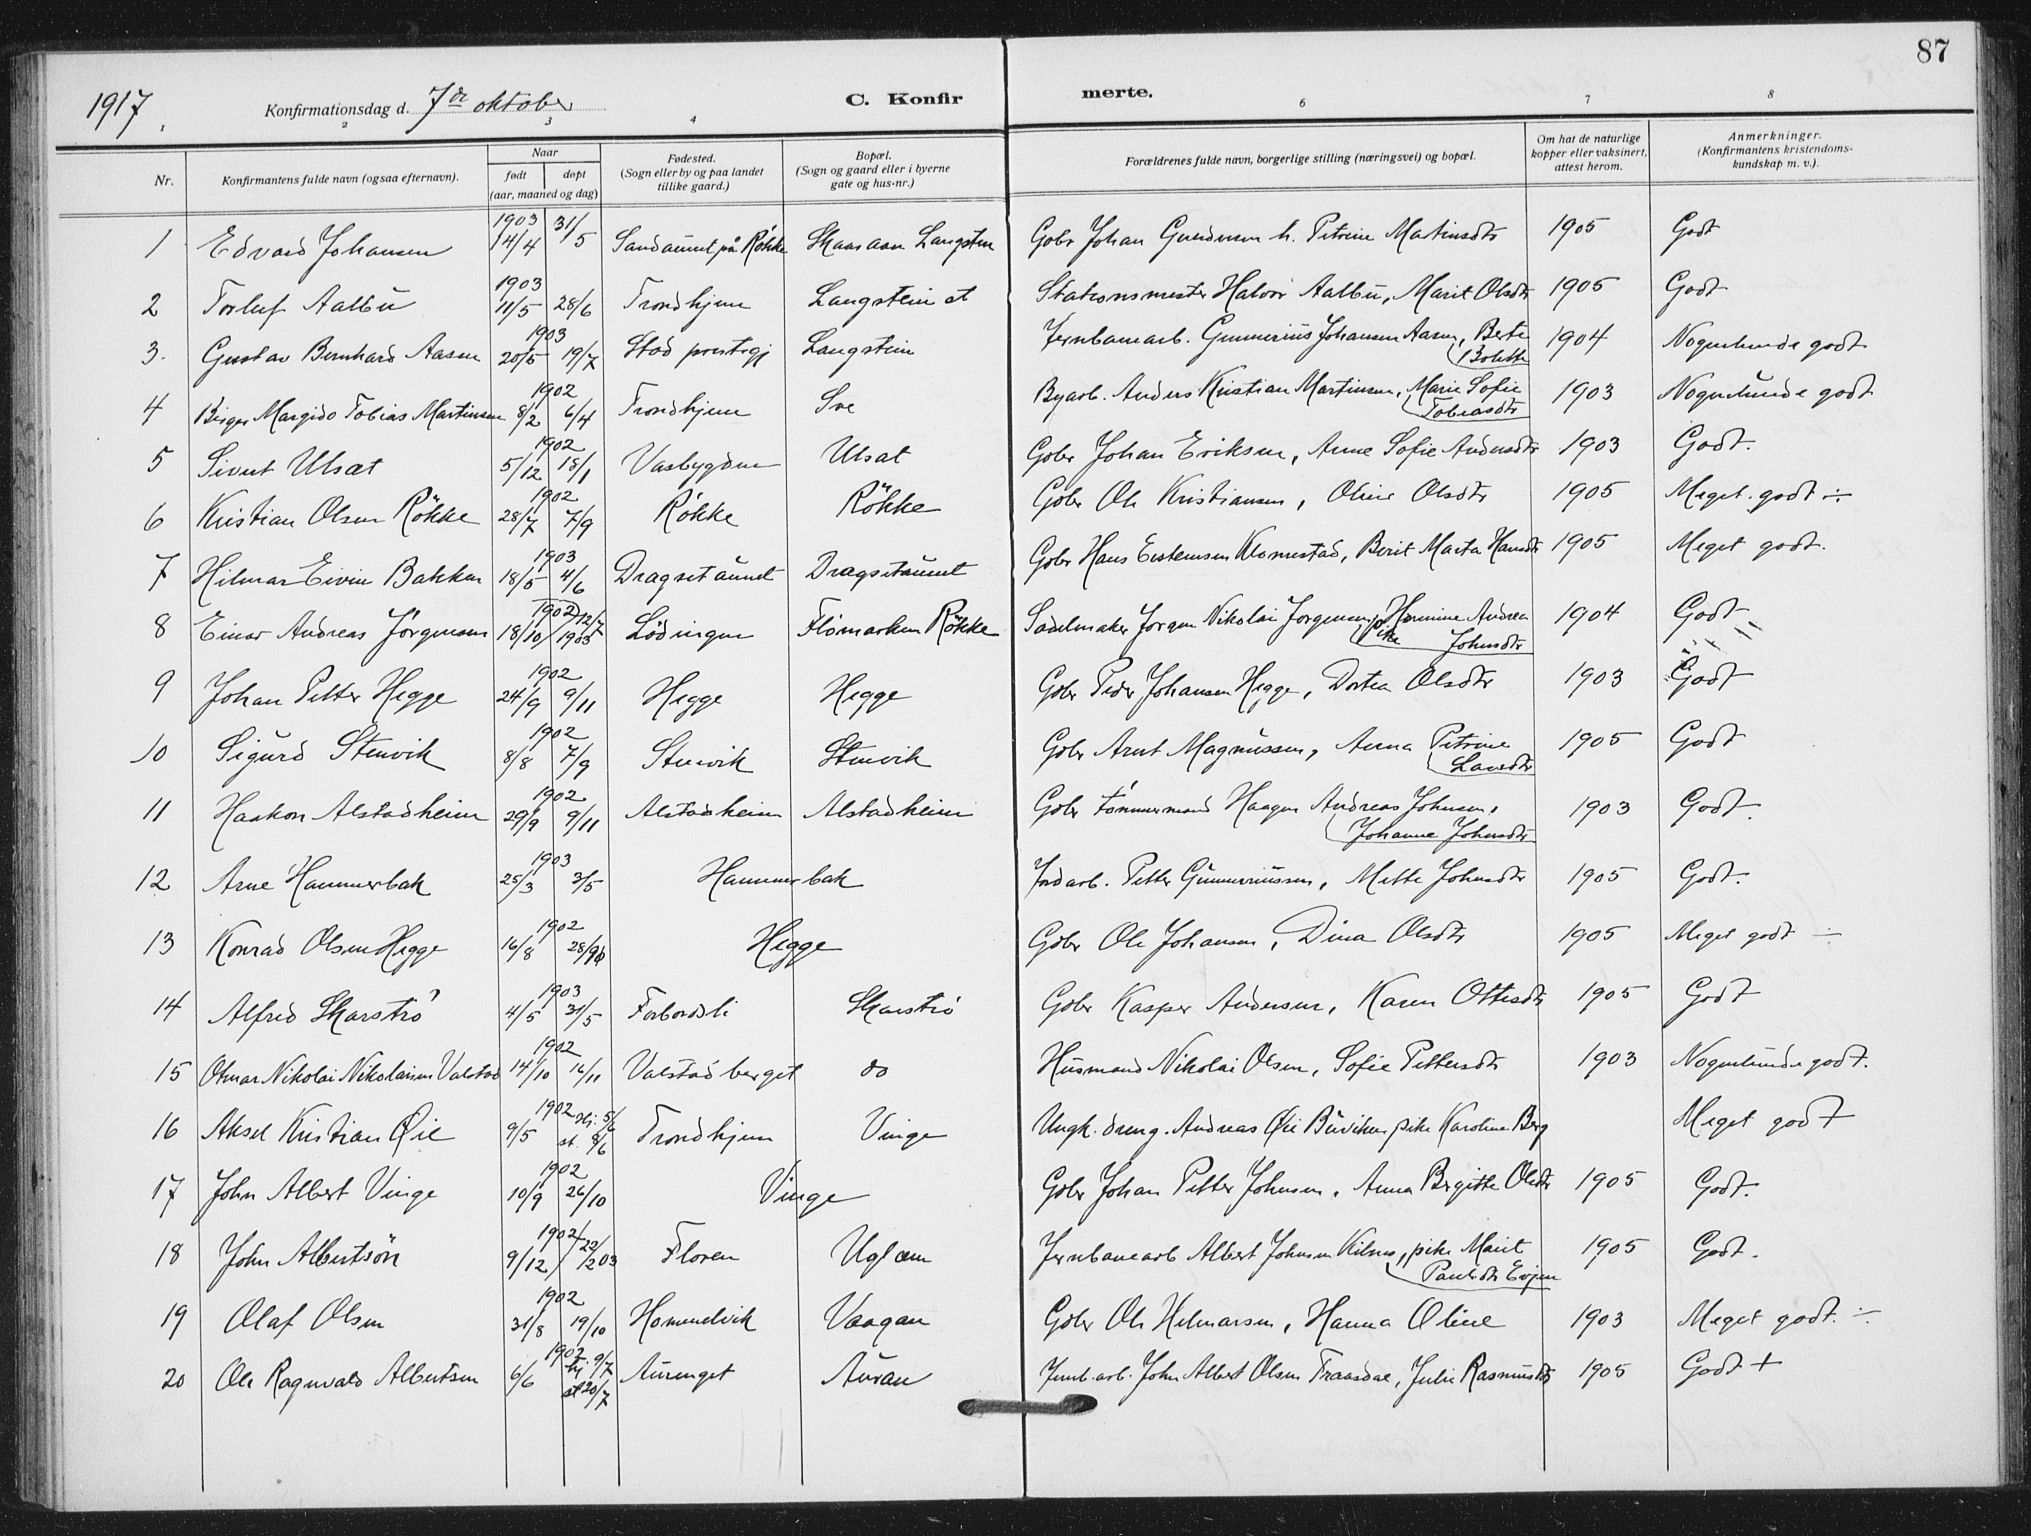 87
1917 Konfirmationsdag d. 7de oktober C. Konfirmerte.
1 2 3 4 6 7 8
Nr. Konfirmantens fulde navn (ogsaa efternavn). Naar født døpt (aar, maaned og dag) Fødested. (Sogn eller by og paa landet tillike gaard.) Bopæl. (Sogn og gaard eller i byerne gate og hus-nr.) Forældrenes fulde navn, borgerlige stilling (næringsvei) og bopæl. Om hat de naturlige kopper eller vaksinert, attest herom. Anmerkninger. (Konfirmantens kristendomskundskap m. v.).
1 Edvard Johansen 1903 14/4 31/5 på Røkke Langsten Gbr Johan h. Petrine Martinsdtr 1905 Godt
2 Torleif Aalbu 1903 11/5 28/6 Trondhjem Langstein st Stationsmester Halvor Aalbu, Marit Olsdtr 1905 Godt
3. Gustav Bernhard Aasen 1903 20/5 19/7 Stod prestegj Langstein Jernbanearb. Gunnerius Johansen Aasen, Berte Bolette 1904 Nogenlunde godt
4 Birger Margido Tobias Martinsen 1902 8/2 6/4 Trondhjem Sve Byarb. Anders Kristian Martinsen, Marie Sofie Tobiasdtr 1903 Nogenlunde godt
5 Sivert Ulsat 1902 5/12 18/1 Vasbygden Ulsat Gbr Johan Eriksen, Anne Sofie Andersdtr 1903 Godt.
6 Kristian Olsen Røkke 1902 28/7 7/9 Røkke Røkke Gbr Ole Kristiansen, Oline Olsdtr 1905 Meget godt ÷
7 Hilmar Eivin Bakken 1903 18/5 4/6 Dragsetaunet Dragsetaunet Gbr Hans Eistensen, Berit Marta Hansdtr 1905 Meget godt.
8 Einar Andreas Jørgensen 1902 18/10 12/7 1903 Lødingen Flomarken Røkke Sadelmaker Jørgen Nikolai Jørgensen, pike Hermine Andrea Johnsdtr 1904 Godt
9 Johan Petter Hegge 1902 24/9 9/11 Hegge Hegge Gbr Peder Johansen Hegge, Dortea Olsdtr 1903 Godt
10 Sigurd Stenvik 1902 8/8 7/9 Stenvik Stenvik Gbr Arnt Magnussen, Anna Petrine Larsdtr 1905 Godt
11 Haakon Alstadheim 1902 29/9 9/11 Alstadheim Alstadheim Gbr tømmermand Haagen Andreas Johnsen, Johanne Johnsdtr 1903 Godt.
12 Arne Hammerbak 1903 25/3 3/5 Hammerbak Jordarb. Petter Gunneriussen, Mette Johnsdtr 1905 Godt.
13 Konrad Olsen Hegge 1902 16/8 28/9 Hegge Gbr Ole Johansen, Dina Olsdtr 1905 Meget godt ÷
14 Alfred Skarstrø 1903 4/5 31/5 Forbordsli Skarstrø Gbr Kasper Andersen, Karen Ottesdtr 1905 Godt
15 Otmar Nikolai Nikolaisen Valstad 1902 14/10 16/11 Valstadberget do Husmand Nikolai Olsen, Sofie Pettersdtr 1903 Nogenlunde godt.
16 Aksel Kristian Øie 1902 9/5 Hj. 5/6 st. 8/6 Trondhjem Vinge Ungk. dreng. Andreas Øie Burviken pike Karoline Berg Meget godt
17 John Albert Vinge 1902 10/9 26/10 Vinge Gbr Johan Petter Johnsen, Anna Bergitte Olsdtr 1905 Godt.
18 John Albertsøn 1902 9/12 22/2 03 Floren Uglem Jernbanearb Albert Johnsen Kilnes, pike Marit Paulsdtr Evjen 1905 Godt.
19 Olaf Olsen 1902 31/8 19/10 Hommelvik Vaagan Gbr Ole Helmarsen, Hanna Oline 1903 Meget godt. ÷
20 Ole Ragnvald Albertsen 1902 6/6 hj. 9/7 st 20/7 Aurenget Auran Jernb.arb. John Albert Olsen Fraasdae, Julie Rasmusdtr 1905 Godt +